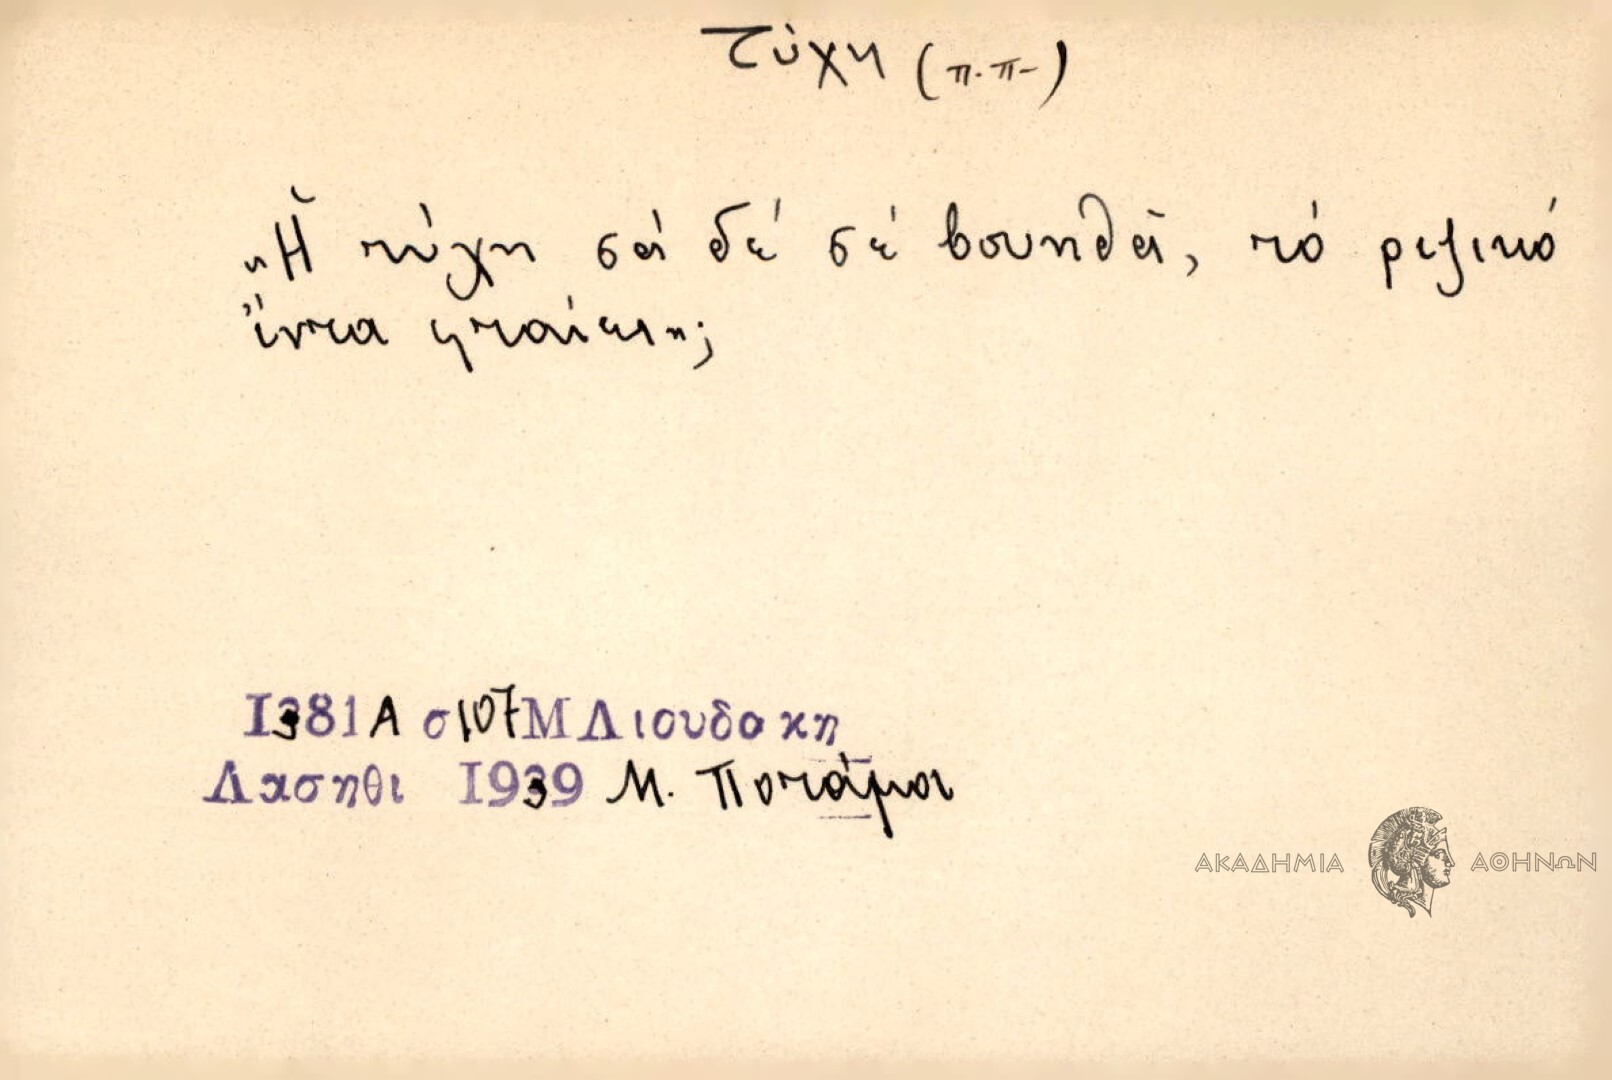 τύχη (π.π-)
"Ἡ τύχη σά δέ σέ βουηθᾶ, τό ριζικό
ἴντα φταίει";
1381 Α σ107 Μ Λιουδακη
Λασηθι 1939 Μ. Ποτάμοι
ΑΚΑΔΗΜΙΑ ΑΘΗΝΩΝ